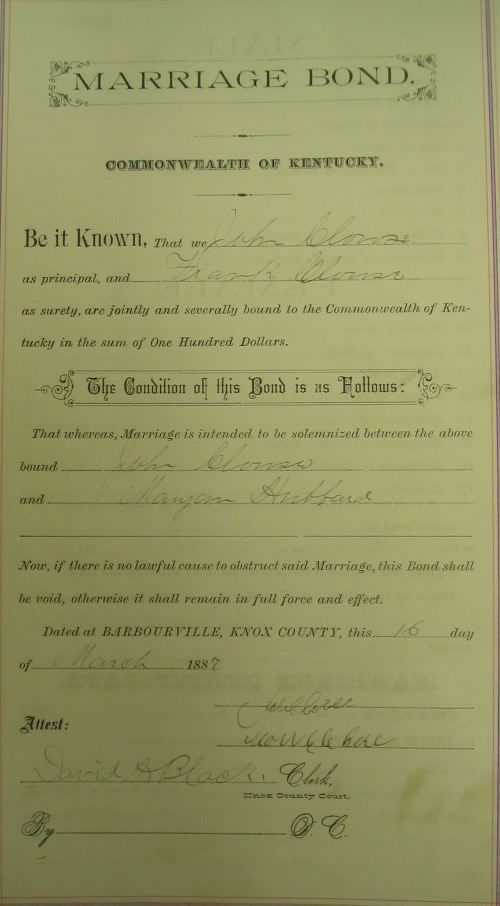 MARRIAGE BOND.
COMMONWEALTH OF KENTUCKY.
Be it Known, That we John Clouse
as principal, and Frank Clouse
as surety, are jointly and severally bound to the Commonwealth of Ken-
tucky in the sum of One Hundred Dollars.
The Condition of this Bond is as Follows:
That whereas, Marriage is intended to be solemnized between the above
bound John Clouse
and Maryan Hubbard
Now, if there is no lawful cause to obstruct said Marriage, this Bond shall
be void, otherwise it shall remain in full force and effect.
Dated at BARBOURVILLE, KNOX COUNTY, this 16 day
of March 1887
Attest:
David A Black. Clerk,
Knox County Court.
By D. C.